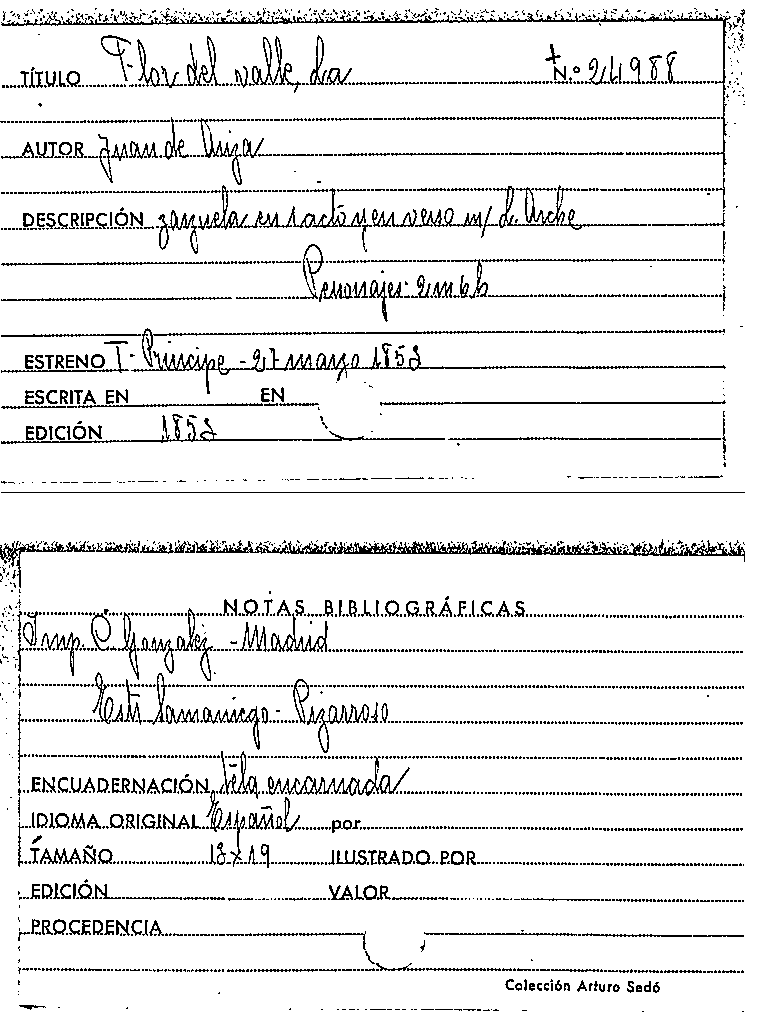 TÍTULO Flor del valle, La + N.º 24988
AUTOR Juan de Ariza
DESCRIPCIÓN zarzuela en 1 acto y en verso m/ L. Arche
Personajes: 2 m 6 h
ESTRENO T. Principe - 27 marzo 1853
ESCRITA EN EN
EDICIÓN 1853
NOTAS BIBLIOGRÁFICAS
Imp. C. Gonzalez - Madrid
Estr Samaniego - Pizarroso
ENCUADERNACIÓN tela encarnada
IDIOMA ORIGINAL Español por
TAMAÑO 13 x 19 ILUSTRADO POR
EDICIÓN VALOR
PROCEDENCIA
Colección Arturo Sedó